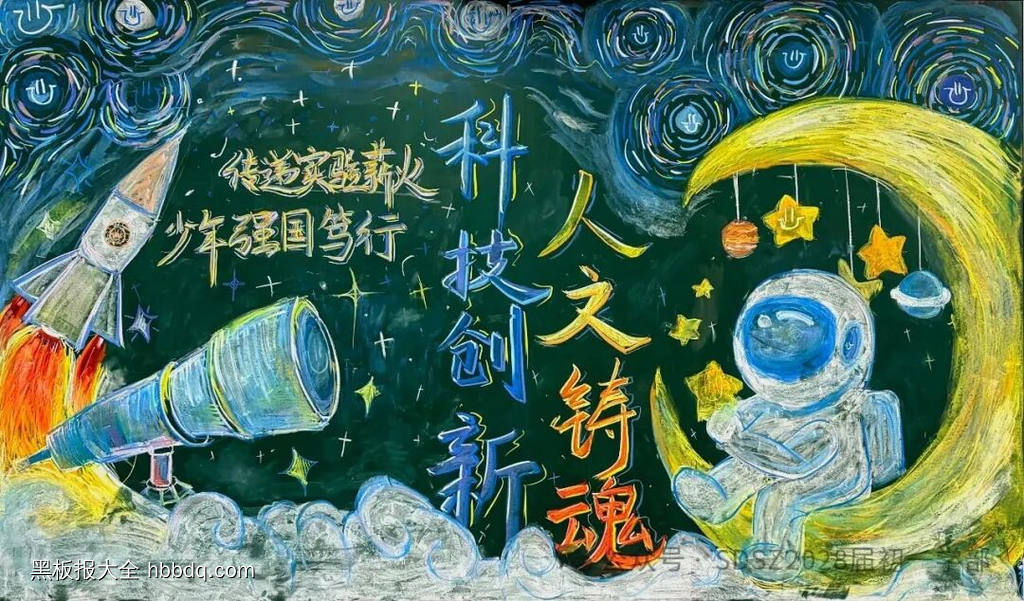 传递实验薪火
少年强国笃行
科技创新
人文铸魂
黑板报大全 hbbdq.com
公众号·SDSZ2028届初一学部